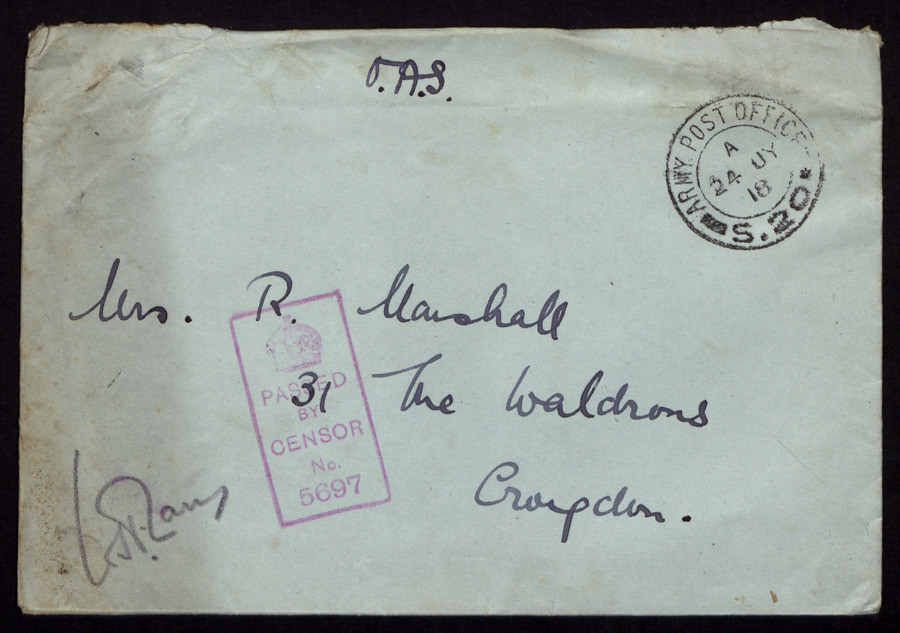 O.A.S.
ARMY POST OFFICE
A
24 JY
18
S.20
Mrs. R. Marshall
31 The Waldrons
Croydon.
PASSED
BY
CENSOR
No.
5697